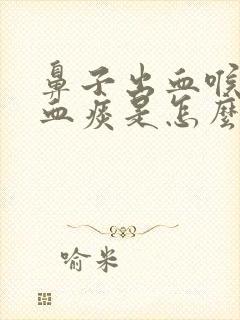 鼻子出血喉
血痰是怎麼
喻米